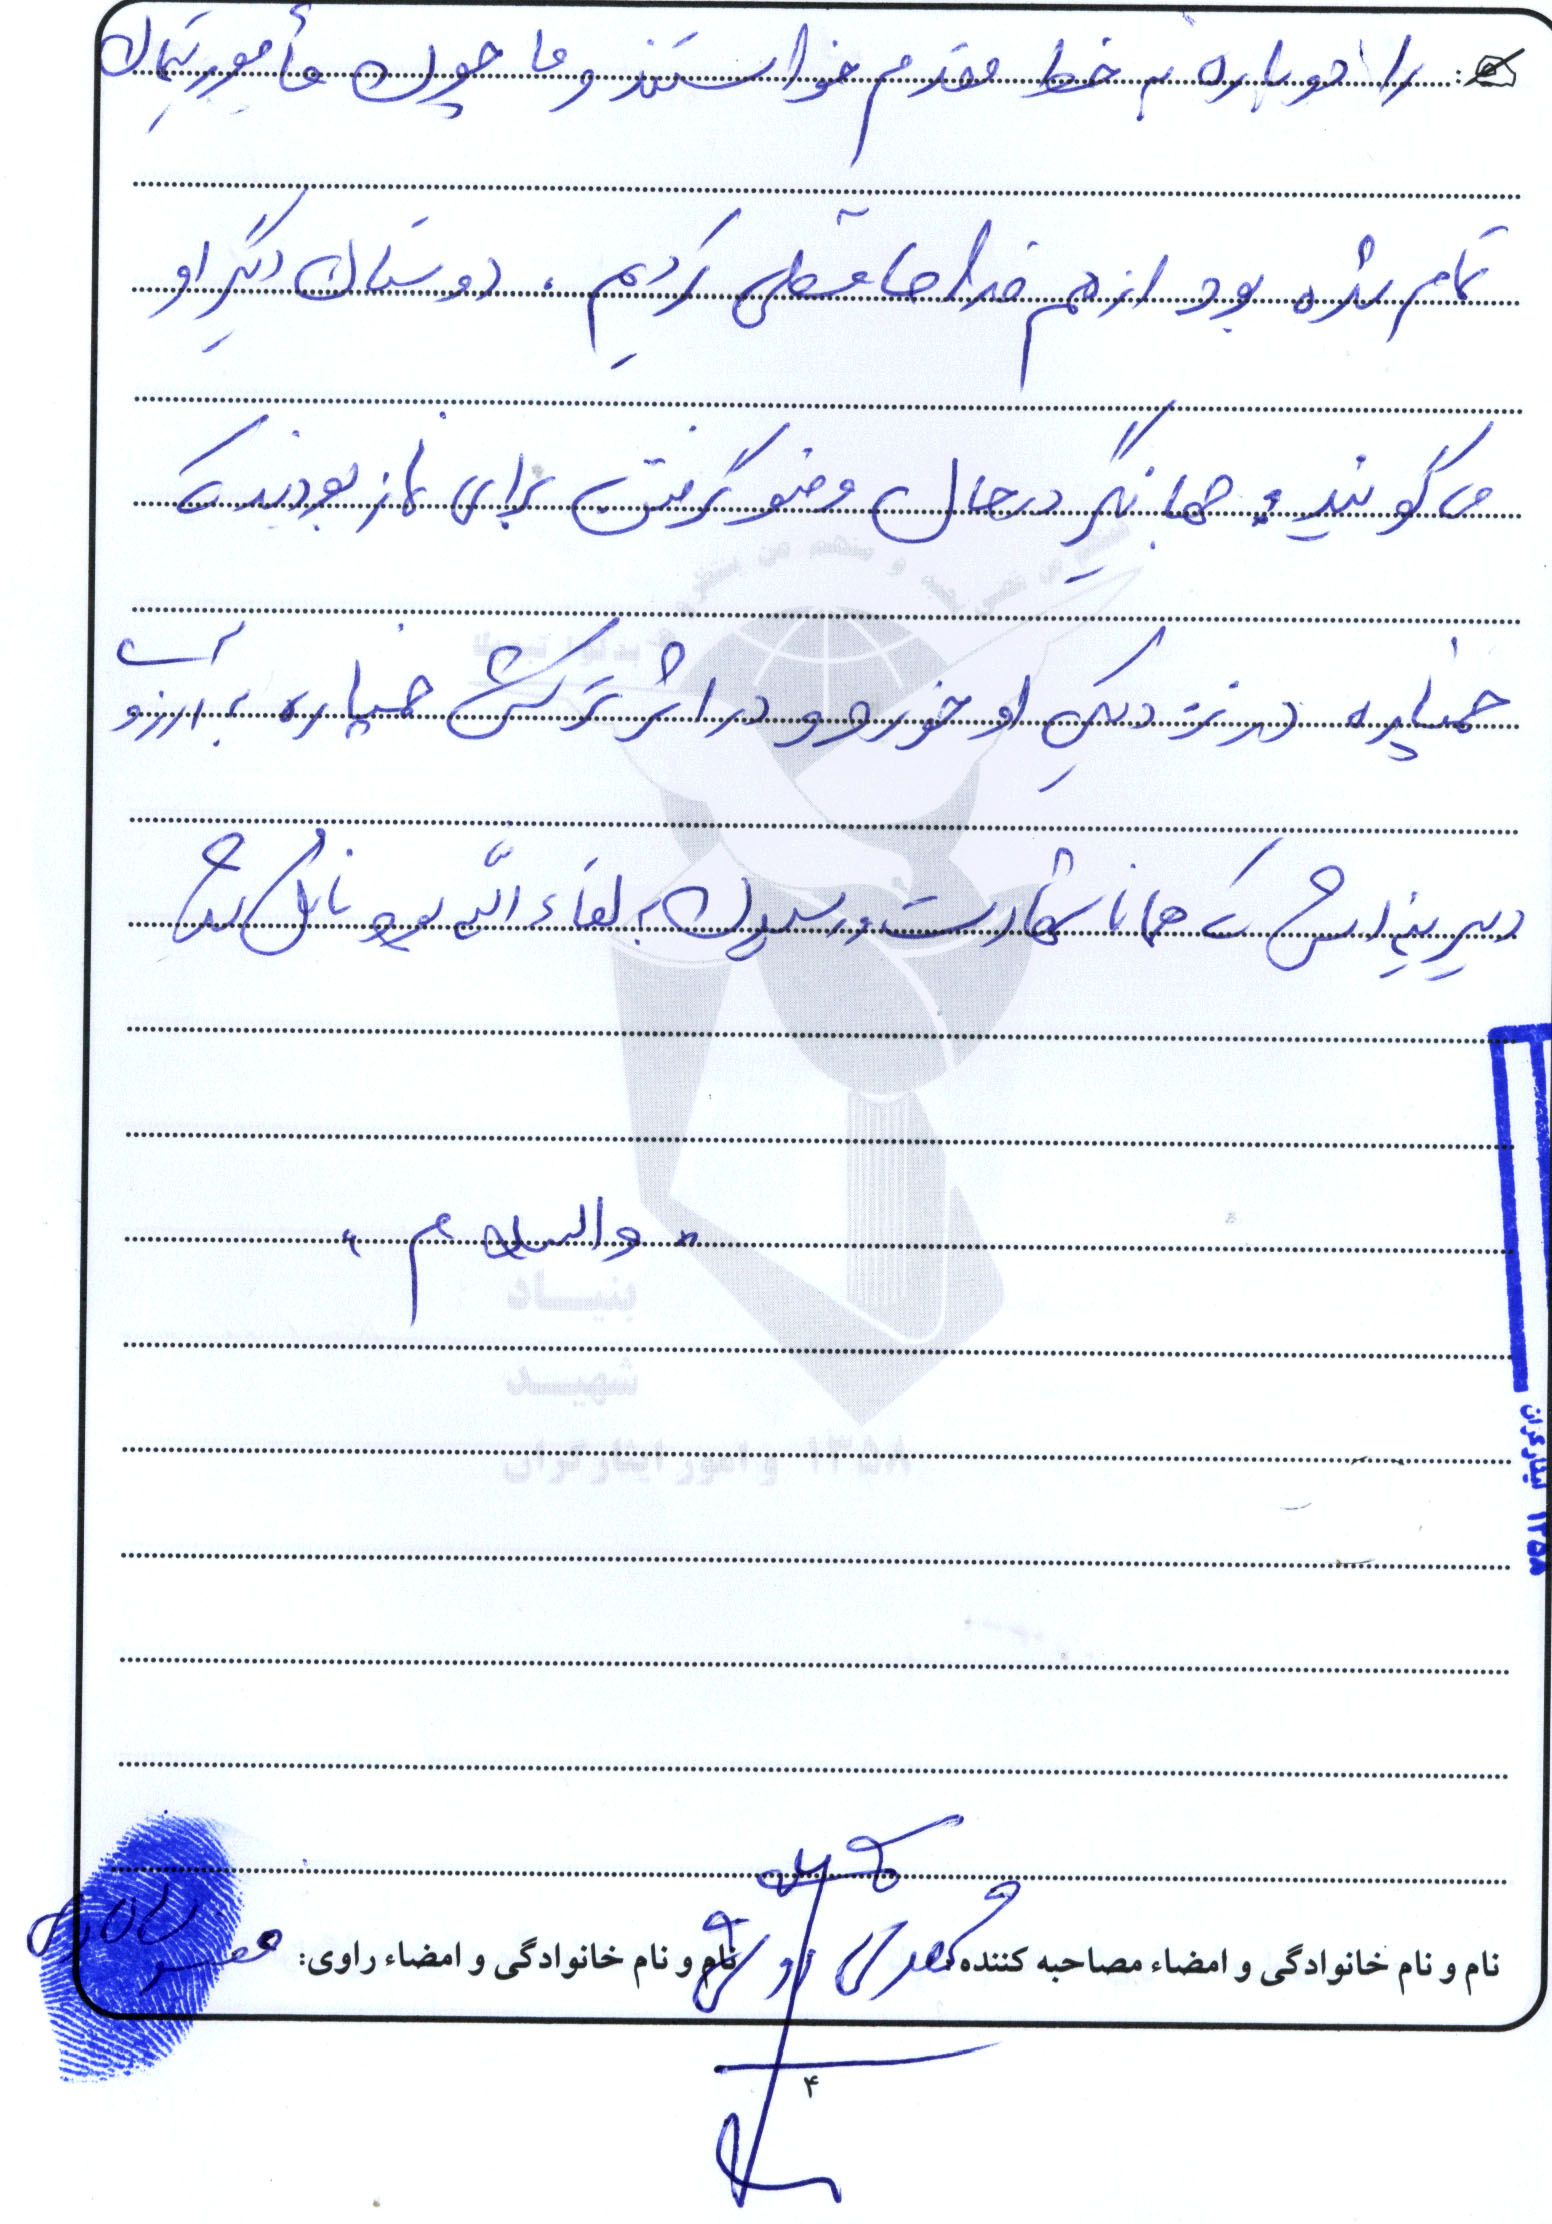 را دوباره به خط مقدم خواستند و ما چون مأموریتمان
تمام شده بود از هم خداحافظی کردیم . دوستان دیگر او
می گویند : جهانگیر در حال وضو گرفتن برای نماز بودند که
خمپاره در نزدیکی او خورد و در اثر ترکش خمپاره به آرزوی
دیرینه اش که همانا شهادت و رسیدن به لقاء الله بود نائل شد
" والسلام "
بنیاد
شهید
و امور ایثارگران ۱۳۵۸
ایثارگران ۱۳۵۸
نام و نام خانوادگی و امضاء مصاحبه کننده:
نام و نام خانوادگی و امضاء راوی:
۴